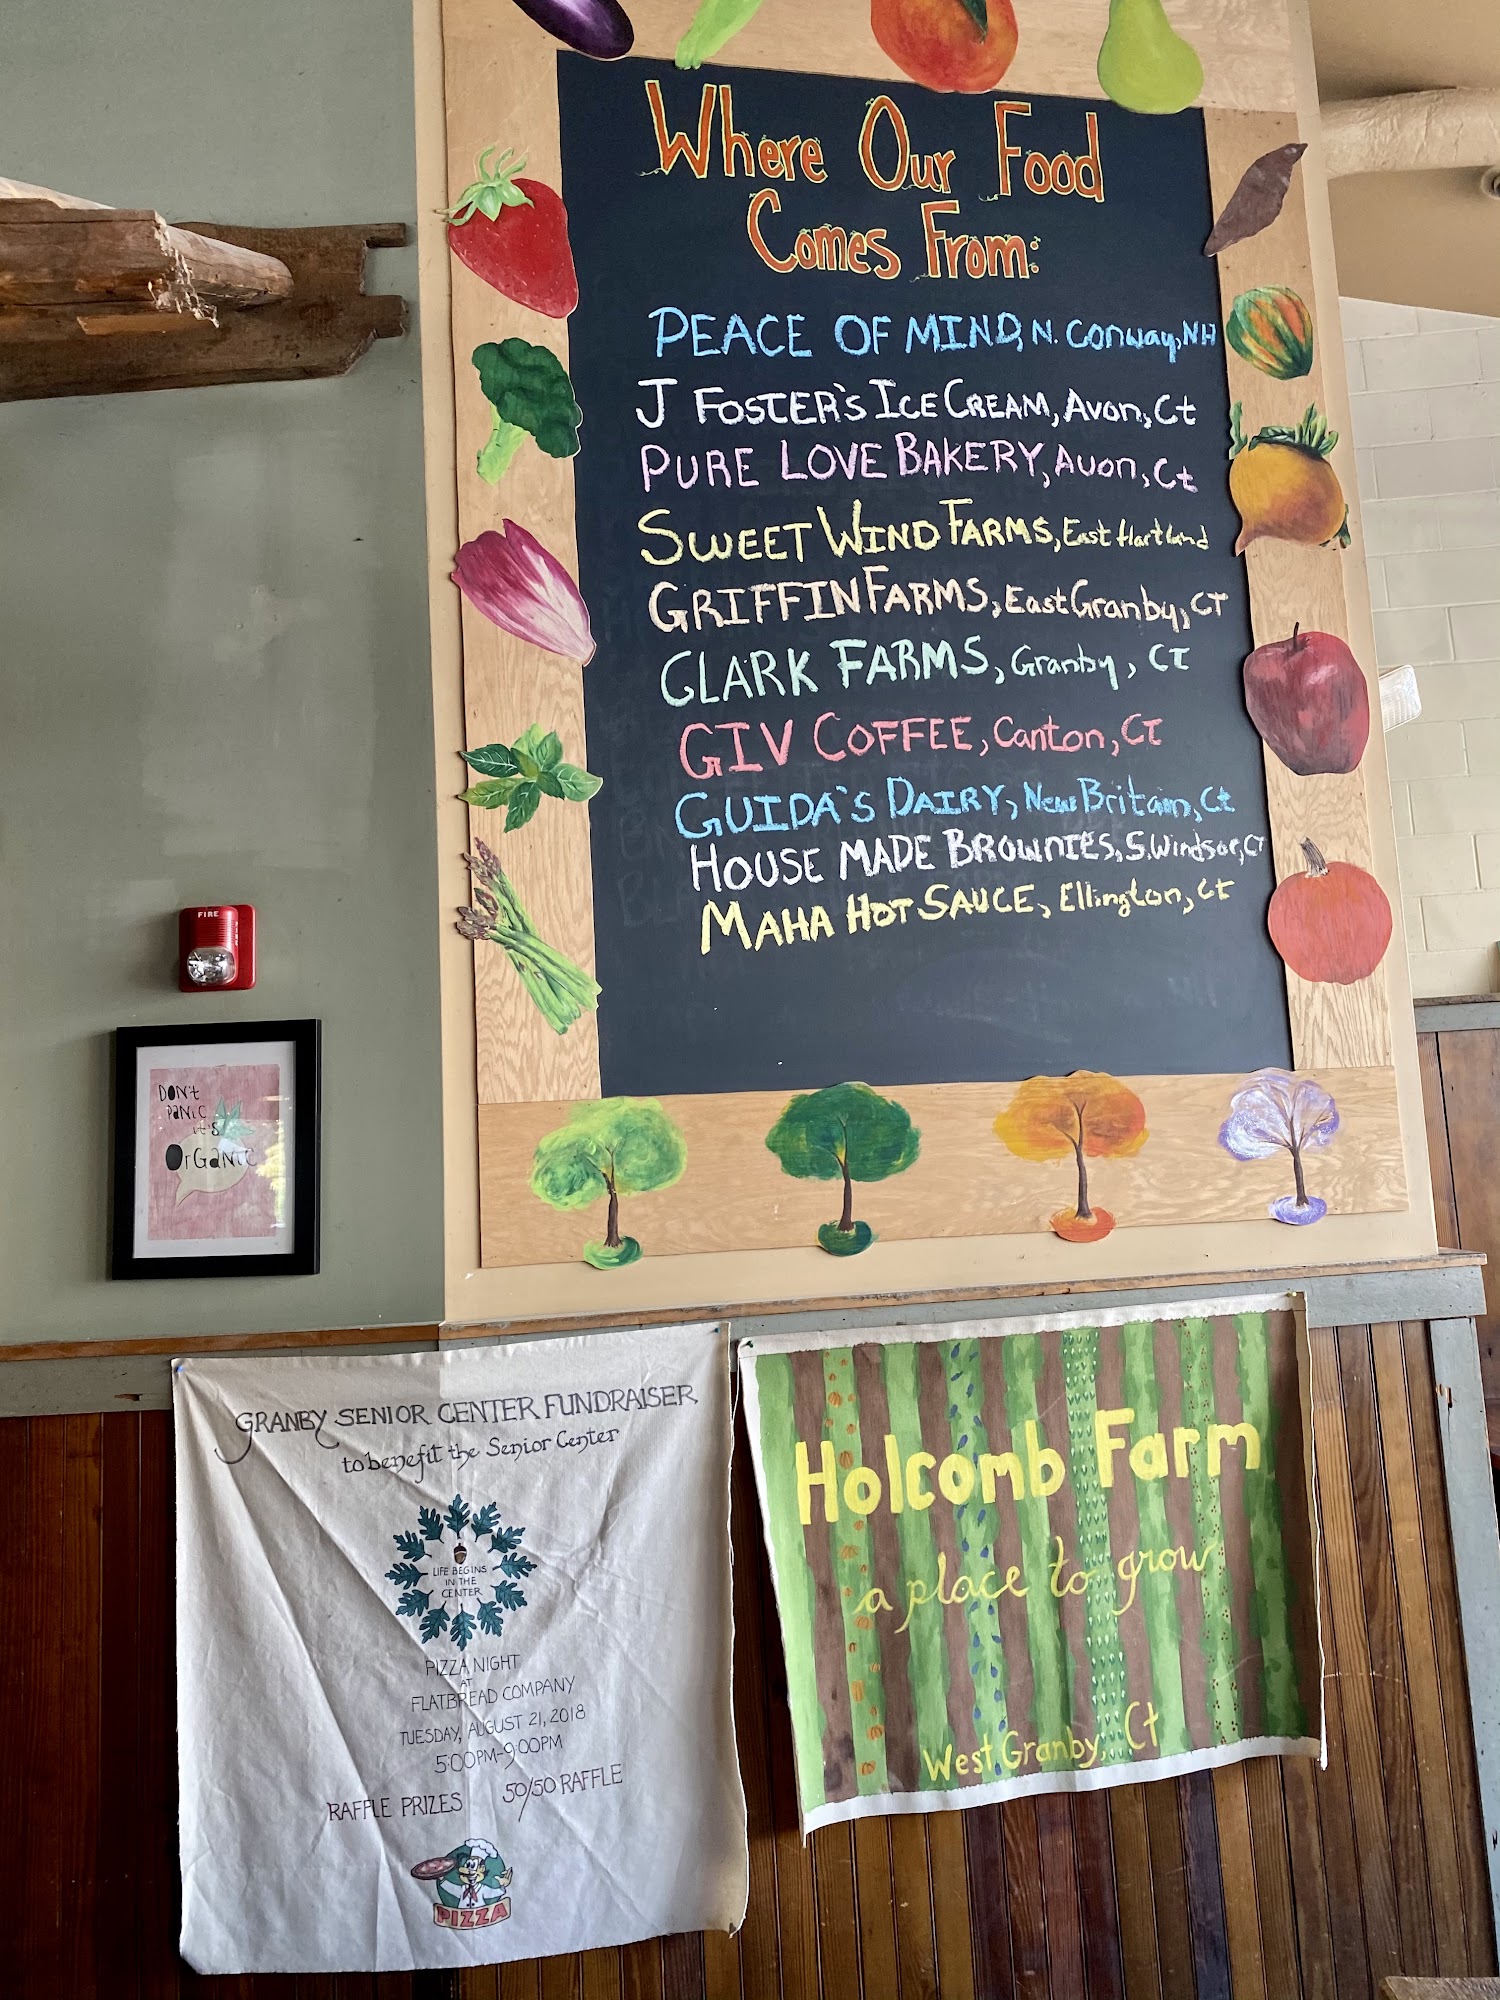 Where Our Food
Comes From:
PEACE OF MIND, N. Conway, NH
J FOSTER'S ICE CREAM, Avon, Ct
PURE LOVE BAKERY, Avon, Ct
SWEET WIND FARMS, East Hartland
GRIFFIN FARMS, East Granby, CT
CLARK FARMS, Granby, CT
GIV COFFEE, Canton, CT
GUIDA'S DAIRY, New Britain, Ct
HOUSE MADE BROWNIES, S. Windsor, CT
MAHA HOT SAUCE, Ellington, Ct
FIRE
DON't
PANIC
it's
OrGaNIC
GRANBY SENIOR CENTER FUNDRAISER
to benefit the Senior Center
LIFE BEGINS
IN THE
CENTER
PIZZA NIGHT
AT
FLATBREAD COMPANY
TUESDAY, AUGUST 21, 2018
5:00PM-9:00PM
RAFFLE PRIZES 50/50 RAFFLE
PIZZA
Holcomb Farm
a place to grow
West Granby, Ct